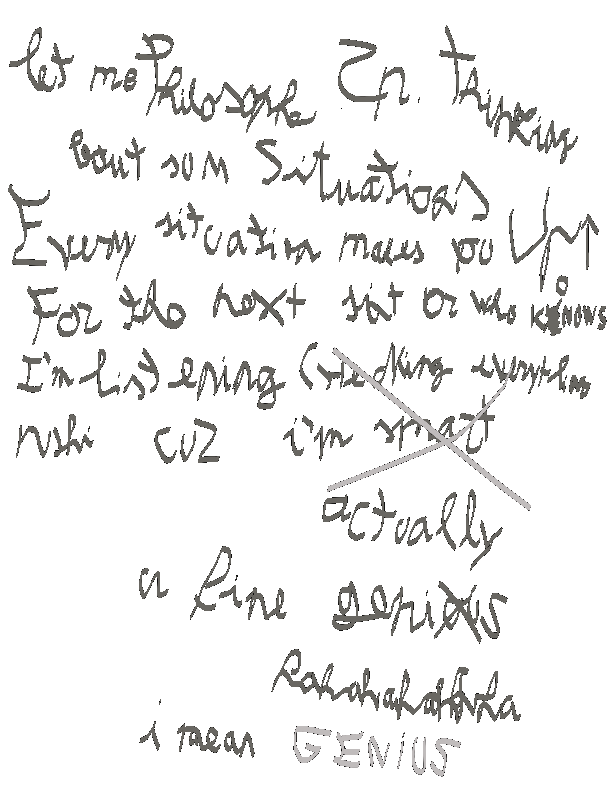 let me Philosophe In. thinking
bout som Situations
Every situation makes you Up
For the next sit or who KNOWS
I'm listening (checking everything
cuz i'm smart
actually
a fine genius
hahahahahaha
i mean GENIUS